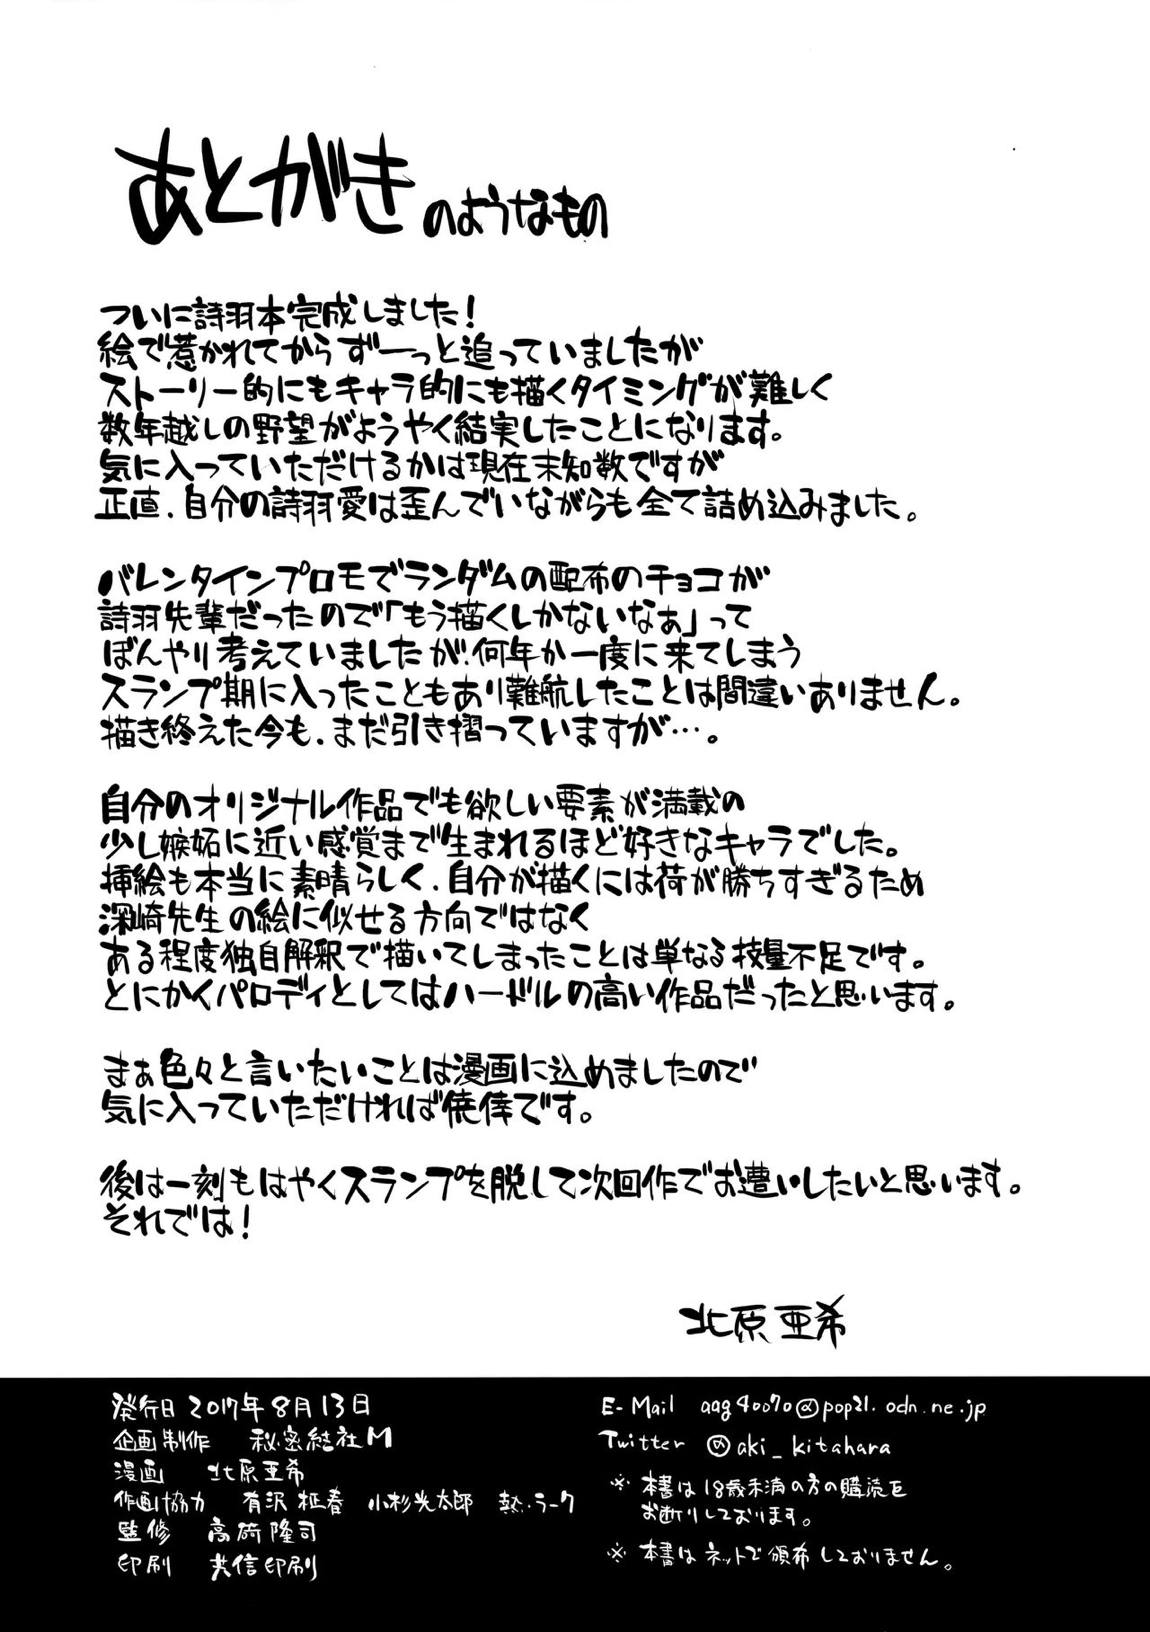 あとがきのようなもの
ついに詩羽本完成しました!
絵で惹かれてからずーっと追っていましたが
ストーリー的にもキャラ的にも描くタイミングが難しく
数年越しの野望がようやく結実したことになります。
気に入っていただけるかは現在未知数ですが
正直、自分の詩羽愛は歪んでいながらも全て詰め込みました。
バレンタインプロモでランダムの配布のチョコが
詩羽先輩だったので「もう描くしかないなぁ」って
ぼんやり考えていましたが、何年か一度に来てしまう
スランプ期に入ったこともあり難航したことは間違いありません。
描き終えた今も、まだ引き摺っていますが…。
自分のオリジナル作品でも欲しい要素が満載の
少し嫉妬に近い感覚まで生まれるほど好きなキャラでした。
挿絵も本当に素晴らしく、自分が描くには荷が勝ちすぎるため
深崎先生の絵に似せる方向ではなく
ある程度独自解釈で描いてしまったことは単なる技量不足です。
とにかくパロディとしてはハードルの高い作品だったと思います。
まぁ色々と言いたいことは漫画に込めましたので
気に入っていただければ僥倖です。
後は一刻もはやくスランプを脱して次回作でお遭いしたいと思います。
それでは!
北原亜希
発行日 2017年8月13日
企画制作 秘密結社M
漫画 北原亜希
作画協力 有沢 柾春 小杉光太郎 熱・ラーク
監修 高崎隆司
印刷 共信印刷
E-Mail aag40070@pop21.odn.ne.jp
Twitter @aki_kitahara
※ 本書は18歳未満の方の購読を
お断りしております。
※ 本書はネットで頒布しておりません。